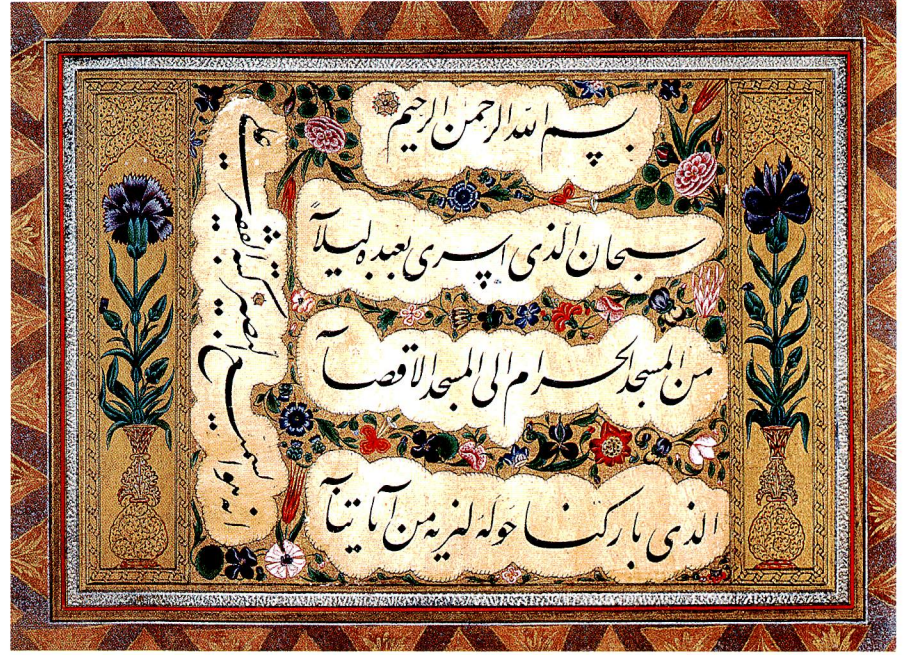 بسم الله الرحمن الرحيم
سبحان الذی اسری بعبده ليلاً
من المسجد الحرام الی المسجد الاقصآ
الذی بارکنا حوله لنريه من آياتنآ
انه هو السميع البصير